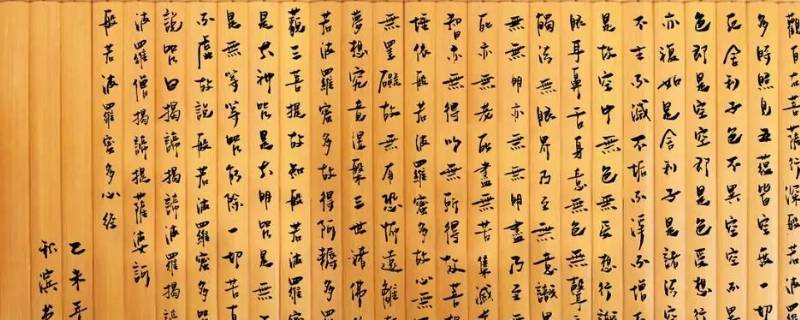 觀自在菩薩行深般若波羅
多時照見五蘊皆空
厄舍利子色不異空空不
色即是空空即是色受想行識
亦復如是舍利子是諸法空
不生不滅不垢不淨不增不
是故空中無色無受想行識
眼耳鼻舌身意無色聲
觸法無眼界乃至無意識
無無明亦無無明盡乃至
死亦無老死盡無苦集滅
智亦無得以無所得故菩
埵依般若波羅蜜多故心無
無罣礙故無有恐怖遠離
夢想究竟涅槃三世諸佛
若波羅蜜多故得阿耨多羅
藐三菩提故知般若波羅蜜
是大神咒是大明咒是無
是無等等咒能除一切苦真
不虛故說般若波羅蜜多咒
說咒曰揭諦揭諦波羅揭諦
波羅僧揭諦提薩婆訶
般若波羅蜜多心經
乙未年
濱书